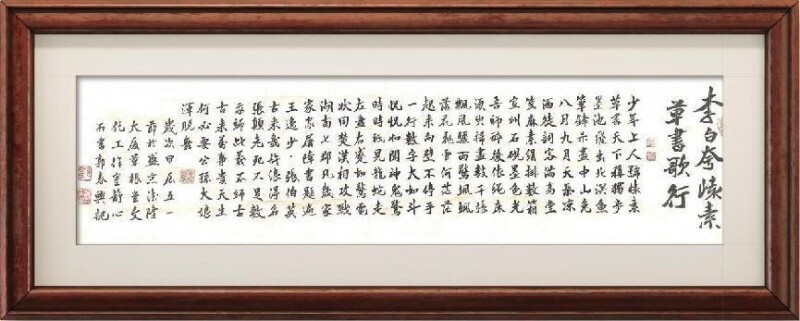 李白 懷素
草書歌行
少年上人號懷素
草書天下稱獨步
墨池飛出北溟魚
筆鋒殺盡中山兔
八月九月天氣涼
酒徒詞客滿高堂
箋麻素絹排數箱
宣州石硯墨色光
吾師醉後倚繩床
須臾掃盡數千張
飄風驟雨驚颯颯
落花飛雪何茫茫
起來向壁不停手
一行數字大如斗
怳怳如聞神鬼驚
時時祗見龍蛇走
左盤右蹙如驚電
狀同楚漢相攻戰
湖南七郡凡幾家
家家屏障書題遍
王逸少張伯英
古來幾許浪得名
張顛老死不足數
我師此義不師古
古來萬事貴天生
何必要公孫大娘
渾脫舞
歲次甲辰五一
節於盛京法隆
大廈草根堂文
化工作室靜心
不害郭春興記